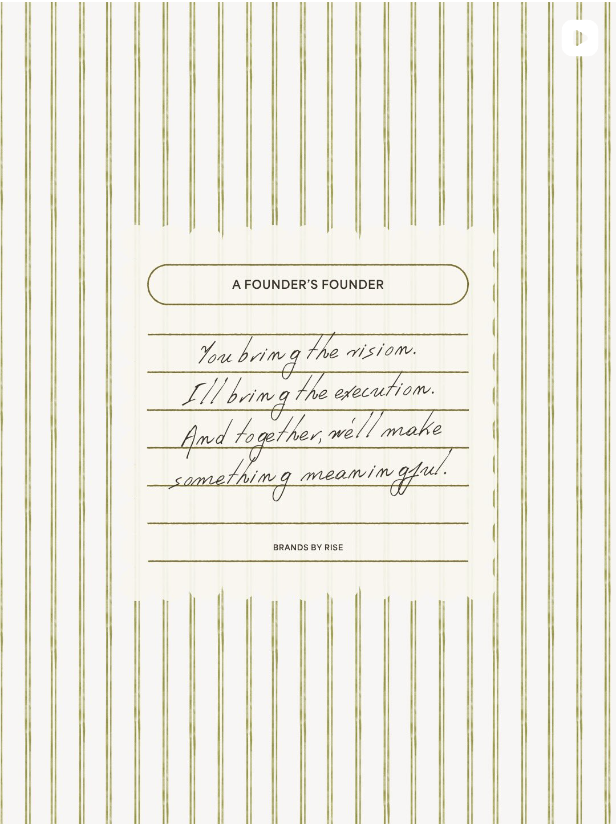 A FOUNDER'S FOUNDER
You bring the vision.
I'll bring the execution.
And together, we'll make
something meaningful.
BRANDS BY RISE